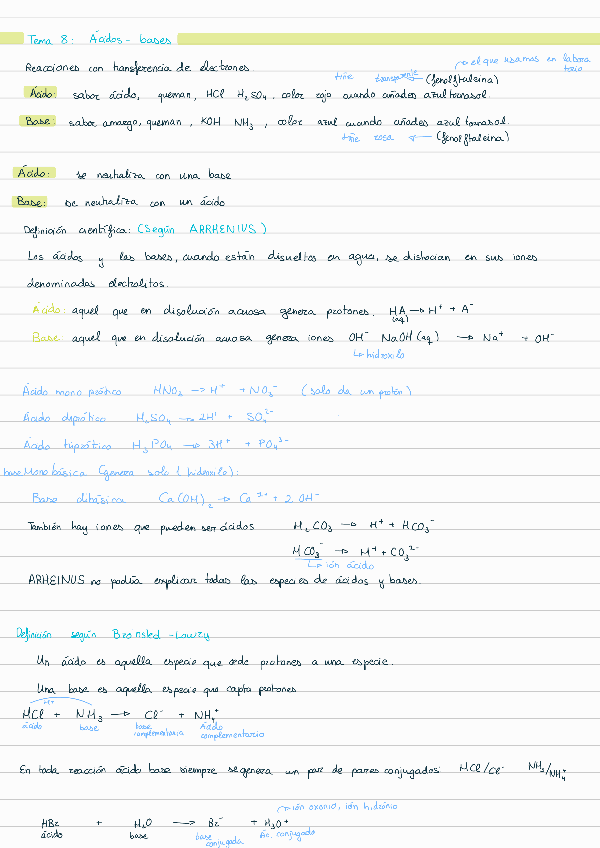 Tema 8: Ácidos - bases
Reacciones con transferencia de electrones
el que usamos en laboratorio
tiñe transparente ← (fenolftaleina)
Ácido: sabor ácido, queman, HCl H₂SO₄, color rojo cuando añades azul tournasol.
Base: sabor amargo, queman, KOH NH₃, color azul cuando añades azul tournasol.
tiñe rosa ← (fenolftaleina)
Ácido: se neutraliza con una base
Base: se neutraliza con un ácido
Definición científica: (Según ARRHENIUS)
Los ácidos y las bases, cuando están disueltos en agua, se disocian en sus iones
denominados electrolitos.
Ácido: aquel que en disolución acuosa genera protones. HA(aq) → H⁺ + A⁻
Base: aquel que en disolución acuosa genera iones OH⁻ NaOH (aq) → Na⁺ + OH⁻
↳ hidroxilo
Ácido monoprótico HNO₃ → H⁺ + NO₃⁻ (solo da un protón)
Ácido diprótico H₂SO₄ → 2H⁺ + SO₄²⁻
Ácido triprótico H₃PO₄ → 3H⁺ + PO₄³⁻
base Monobásica (genera solo 1 hidroxilo):
Base dibásica Ca(OH)₂ → Ca²⁺ + 2OH⁻
También hay iones que pueden ser ácidos H₂CO₃ → H⁺ + HCO₃⁻
HCO₃⁻ → H⁺ + CO₃²⁻
↳ ión ácido
ARHEINUS no podía explicar todas las especies de ácidos y bases.
Definición según Bronsted-Lowry
Un ácido es aquella especie que cede protones a una especie.
Una base es aquella especie que capta protones
H⁺
HCl + NH₃ → Cl⁻ + NH₄⁺
ácido base base complementaria Ácido complementario
En toda reacción ácido base siempre se genera un par de pares conjugados: HCl/Cl⁻ NH₃/NH₄⁺
ión oxonio, ión hidronio
HBr + H₂O → Br⁻ + H₃O⁺
ácido base base conjugada Ác. conjugado